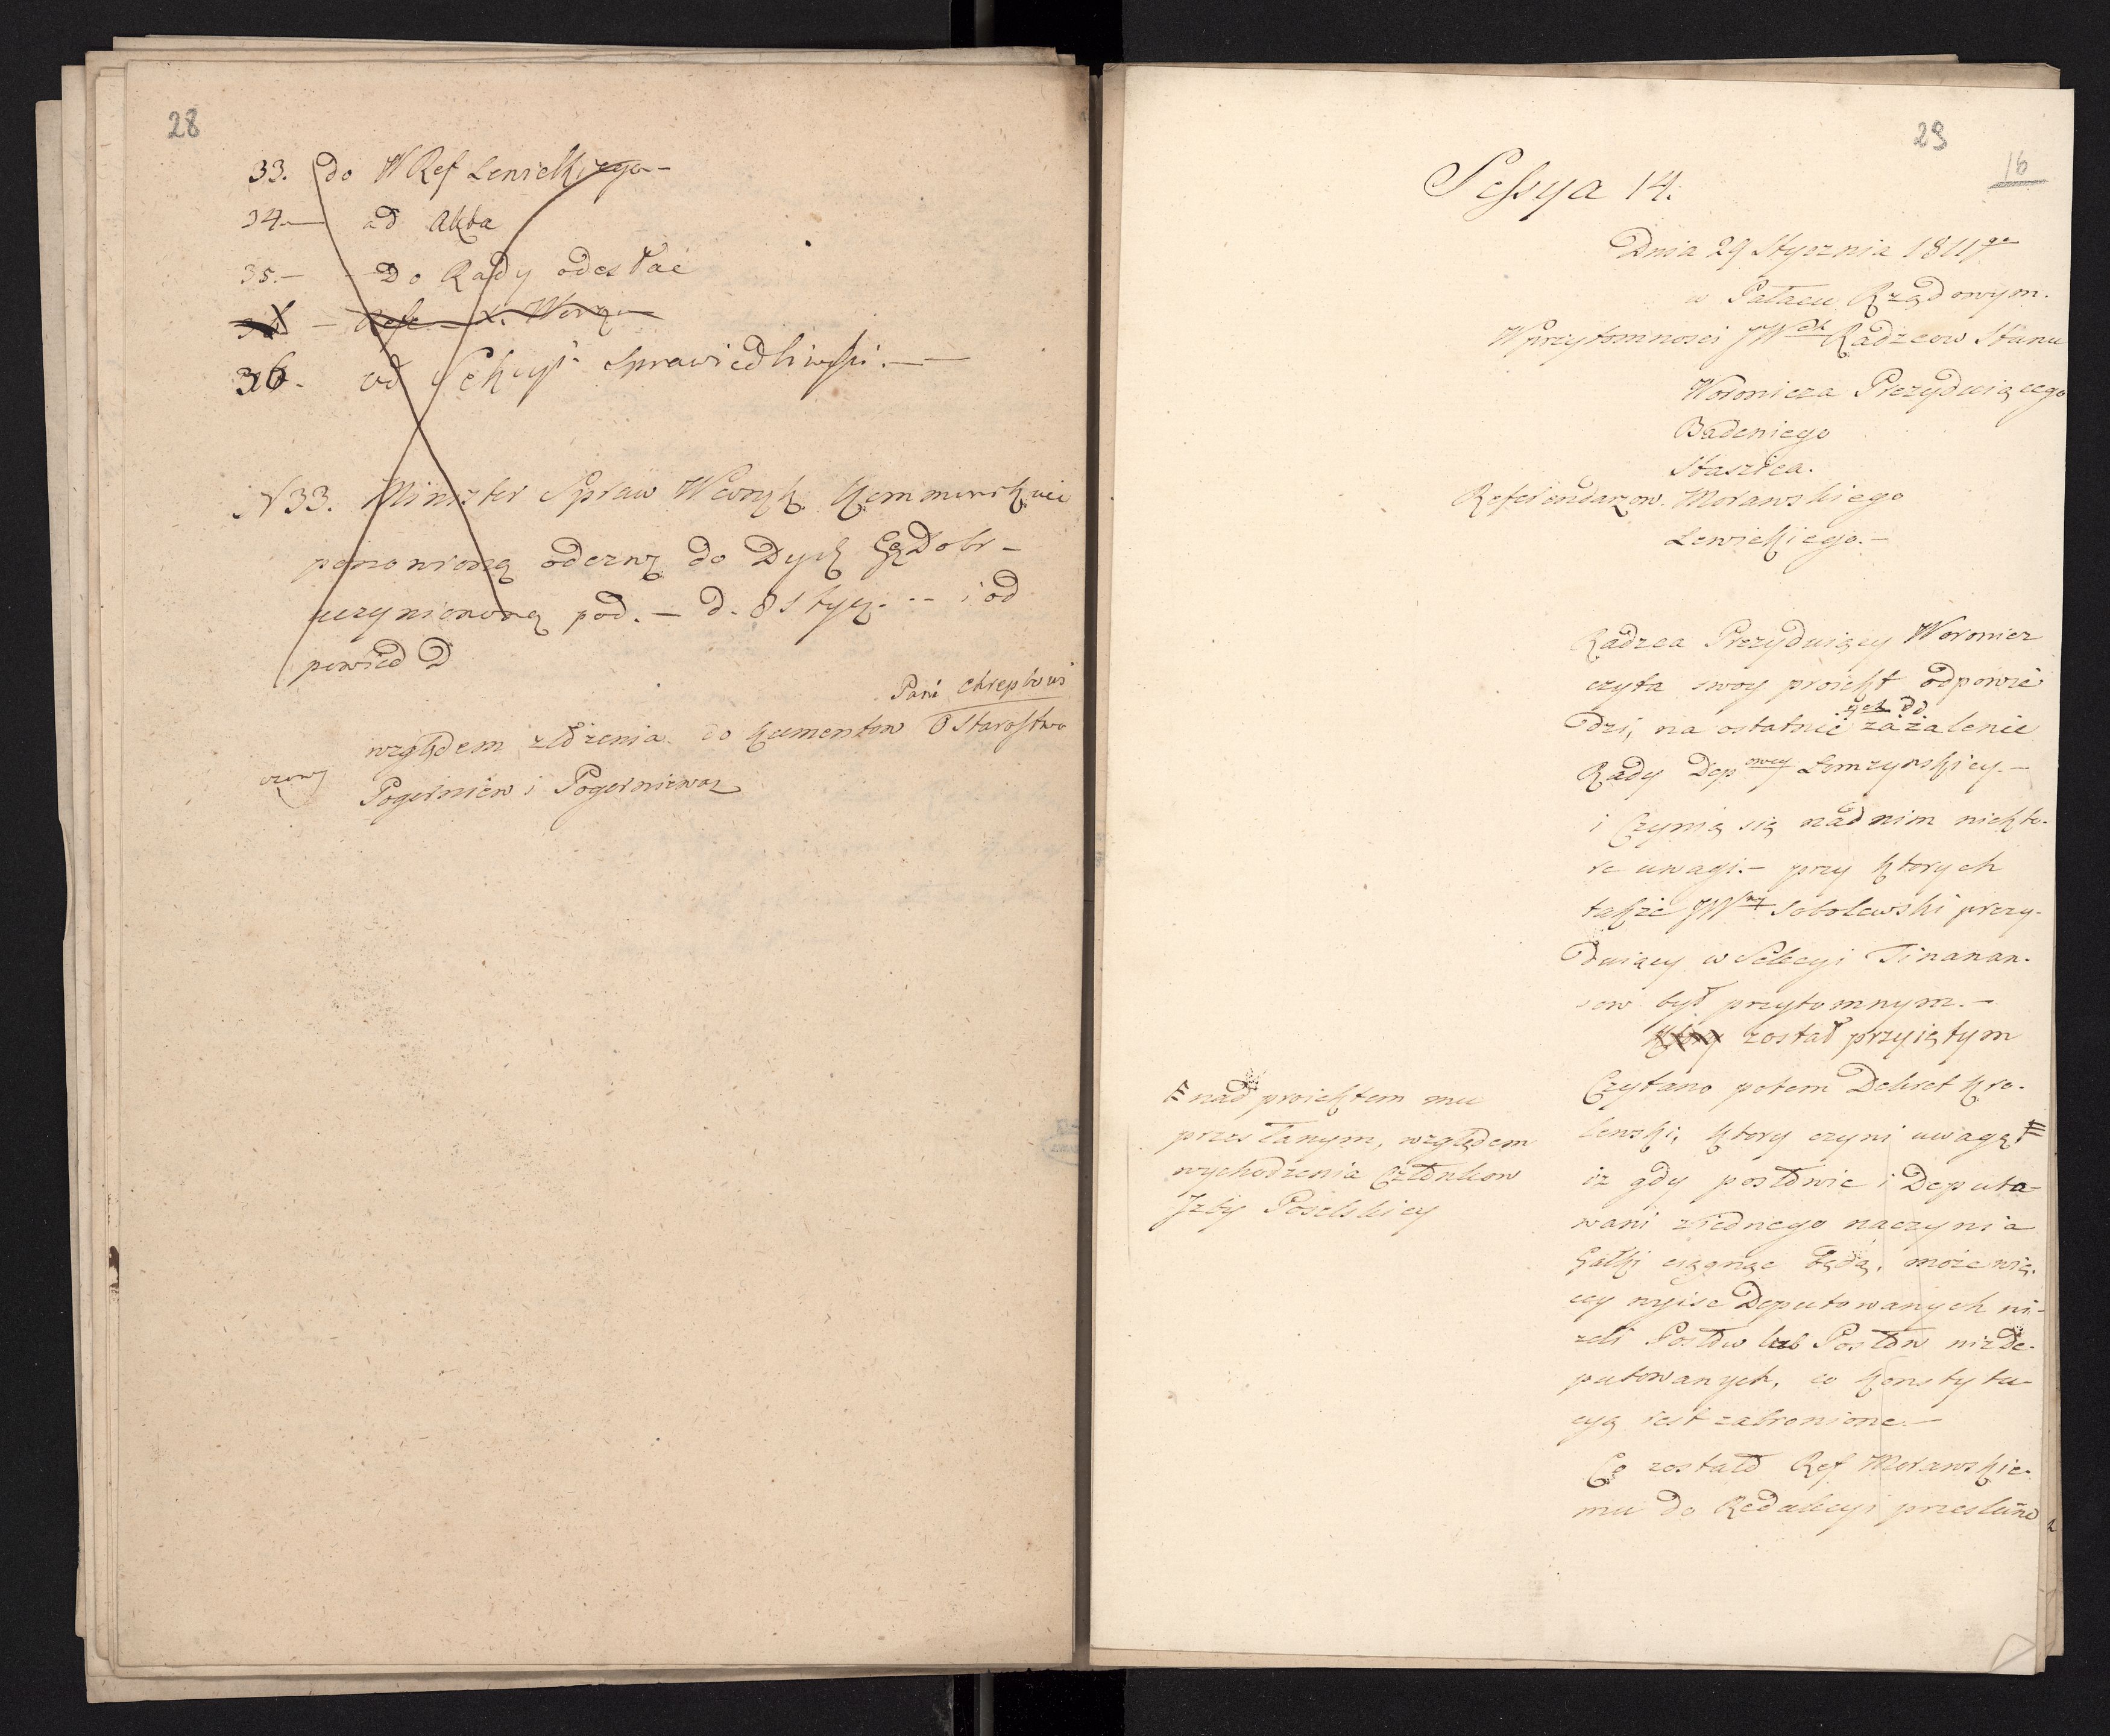 28
33. do W Ref Lewickiego-
34.— ad Akta
35.- - Do Rady odesłac
36 - Refe
36. od Sekcyi sprawiedliwści.—
N33. Minister Spraw Wewnę kommunikuie
ponowioną odezwę do Dyek Dobr-
uczynioną pod. - d. 8 stycz. -- i od
powied D
Pani Chreptowi
względem złożenia dokumentow O Starostwo
Pogerniew i Pogerniewo
29
16
Sessya 14.
Dnia 29 Stycznia 1811 go
w Pałacu Rządowym.
W przytomności JWch Radzcow Stanu
Woronicza Prezyduiącego
Badeniego
Staszica.
Referendarzow. Morawskiego
Lewickiego.-
Radzca Prezyduiący Woronicz
czyta swoy proiekt odpowie
dzi, na ostatnie zażalenie
Rady Depowey Łomżynskiey.-
i Czynią się nad nim niekto-
re uwagi.- przy ktorych
także JWny Sobolewski prezy-
duiący w Sekcyi Finanan-
sow był przytomnym.-
ktory został przyiętym
Czytano potem Dekret Kro-
lewski, ktory czyni uwagę
iz gdy posłowie i Deputo-
wani z iednego naczynia
Gałki ciągnąc będą, może wię-
cey wyisc Deputowanych ni-
zeli Posłow lub Posłow niz De-
putowanych, co konstytu-
cyą iest zabronione.-
Co zostało Ref Morawskie-
mu do Redakcyi przesłano
nad proiektem mu
przesłanym, względem
wychodzenia Członkow
Jzby Poselskiey